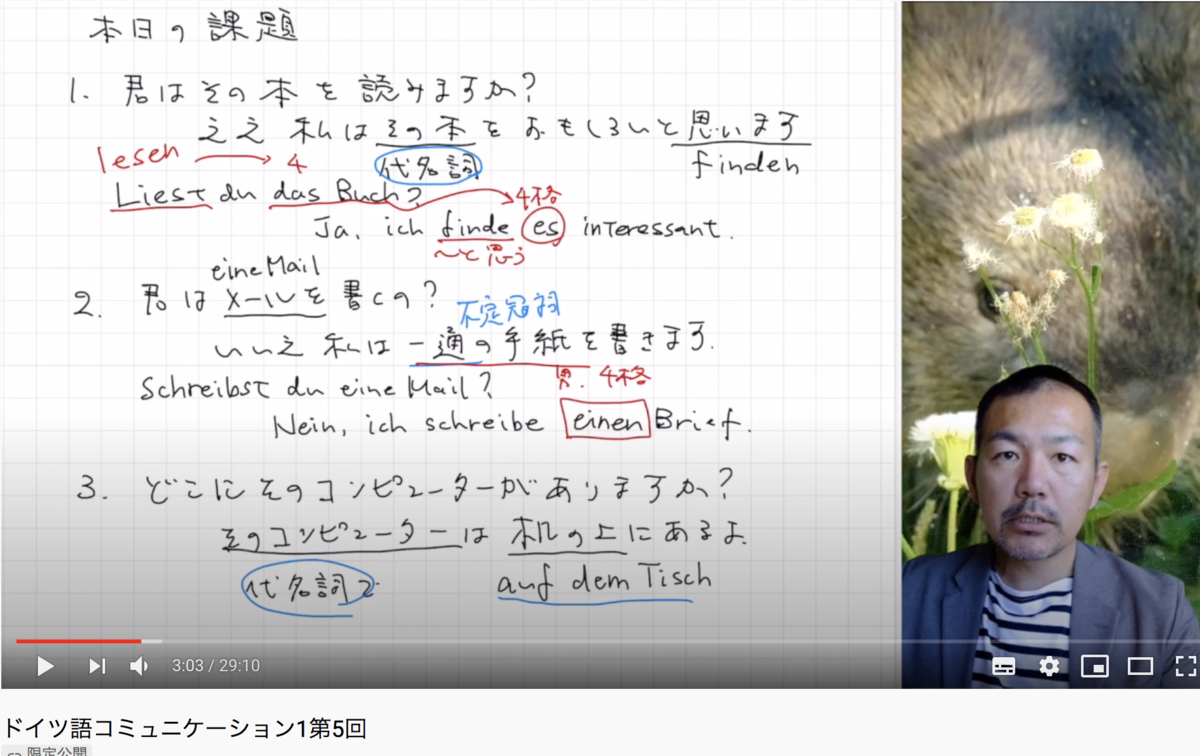 本日の課題
1. 君はその本を読みますか?
ええ 私はその本をおもしろいと思います
lesen → 4
代名詞
finden
Liest du das Buch?
4格
Ja, ich finde es interessant.
〜と思う
eine Mail
2. 君はメールを書くの?
不定冠詞
いいえ 私は一通の手紙を書きます.
男. 4格
Schreibst du eine Mail?
Nein, ich schreibe einen Brief.
3. どこにそのコンピューターがありますか?
そのコンピューターは 机の上にあるよ.
代名詞で
auf dem Tisch
3:03 / 29:10
ドイツ語コミュニケーション1第5回
限定公開